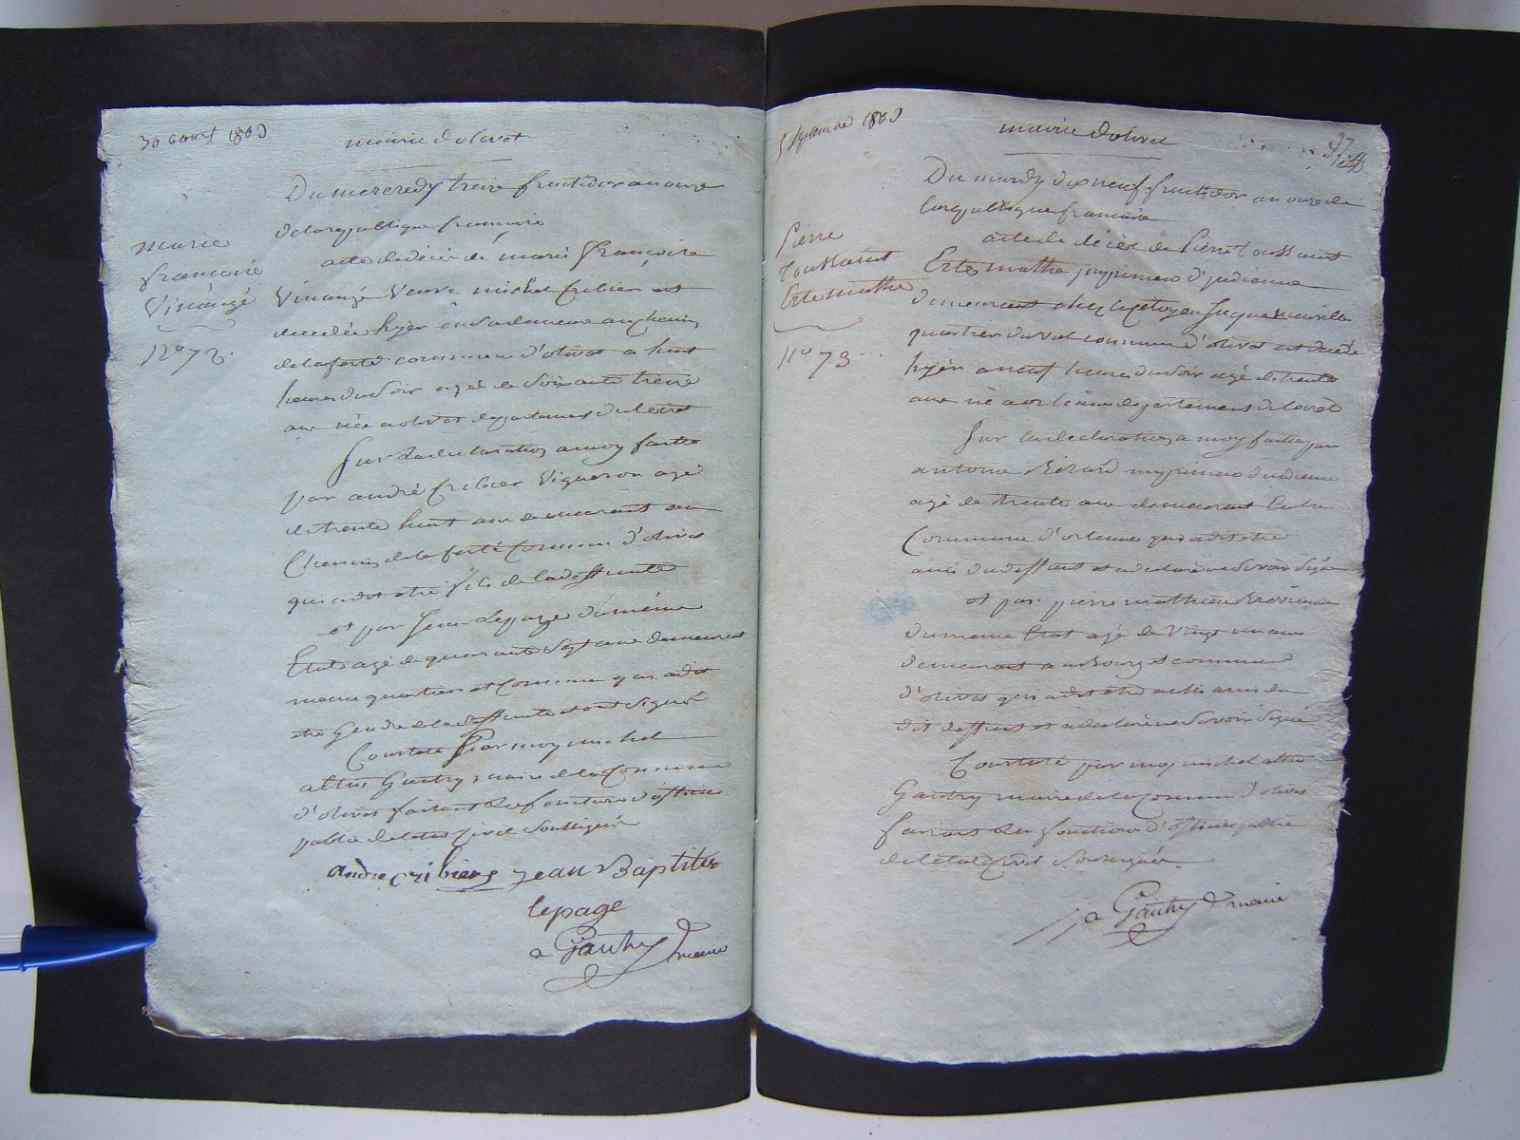 30 aoust 1803
mairie d'olivet
Du mercredy treize fructidor an onze
de la republique françoise
marie
françoise
Vinangé
n° 72.
acte de décès de marie françoise
Vinangé veuve michel Cribier est
décedée hyer en sa demeure au chemin
de la ferté commune d'olivet a huit
heures du soir agée de soixante treize
ans née a olivet departement du loiret
Sur la declaration a moy faitte
par andré Cribier Vigneron agé
de trente huit ans demeurant au
Chemin de la ferté Commune d'olivet
qui a dit etre fils de la deffunte
et par Jean Lepage du même
Etat agé de quarante sept ans demeurant
meme quartier et Commune qui a dit
etre Gendre de la deffunte et ont signé
Constaté Par moy michel
altin Gautry maire de la Commune
d'olivet faisant les fonctions d'officier
public de l'etat Civil soussigné
andre cribiers jean Baptiste
lepage
a Gautry maire
5 Septembre 1803
mairie d'olivet
37
Du mardy dixneuf fructidor an onze de
la republique francaise
Pierre
Toussaint
Ertemathe
n° 73
acte de décès de Pierre Toussaint
Ertemathe imprimeur d'indienne
demeurant chez le Citoyen Jacque
quartier du val commune d'olivet est decédé
hyer a neuf heures du soir agé de trente
ans né a orléans departement du loiret
Sur la declaration a moy faitte par
antoine Bérard imprimeur d'indienne
agé de trente ans demeurant
Commune d'orleans qui a dit etre
ami du deffunt et a declaré ne savoir Signer
et par pierre mathieu
du meme Etat agé de Vingt un ans
demeurant au Bourg et commune
d'olivet qui a dit etre aussi ami du
dit deffunt et a declaré ne savoir signé
Constaté par moy michel altin
Gautry maire de la Commune d'olivet
faisant les fonctions d'officier public
de l'etat Civil Soussigné
a Gautry maire